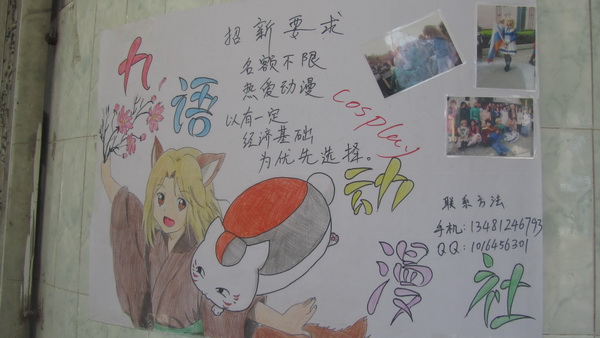 九语
招新要求
名额不限
热爱动漫
cosplay
以有一定
经济基础
为优先选择。
动漫社
联系方法
手机:13481246793
QQ:1016456301